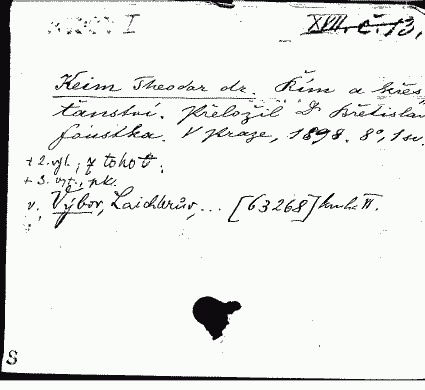 I XVII. č. 13.
Keim Theodor dr. Řím a křes,
ťanství. Přeložil Dr Břetislav
Foustka. V Praze, 1898. 8°, 1 sv.
+ 2. vyd., z tohot.
+ 3. vyt., pk.
v. Výbor, Laichterův, ... [63268] kniha VI.
S